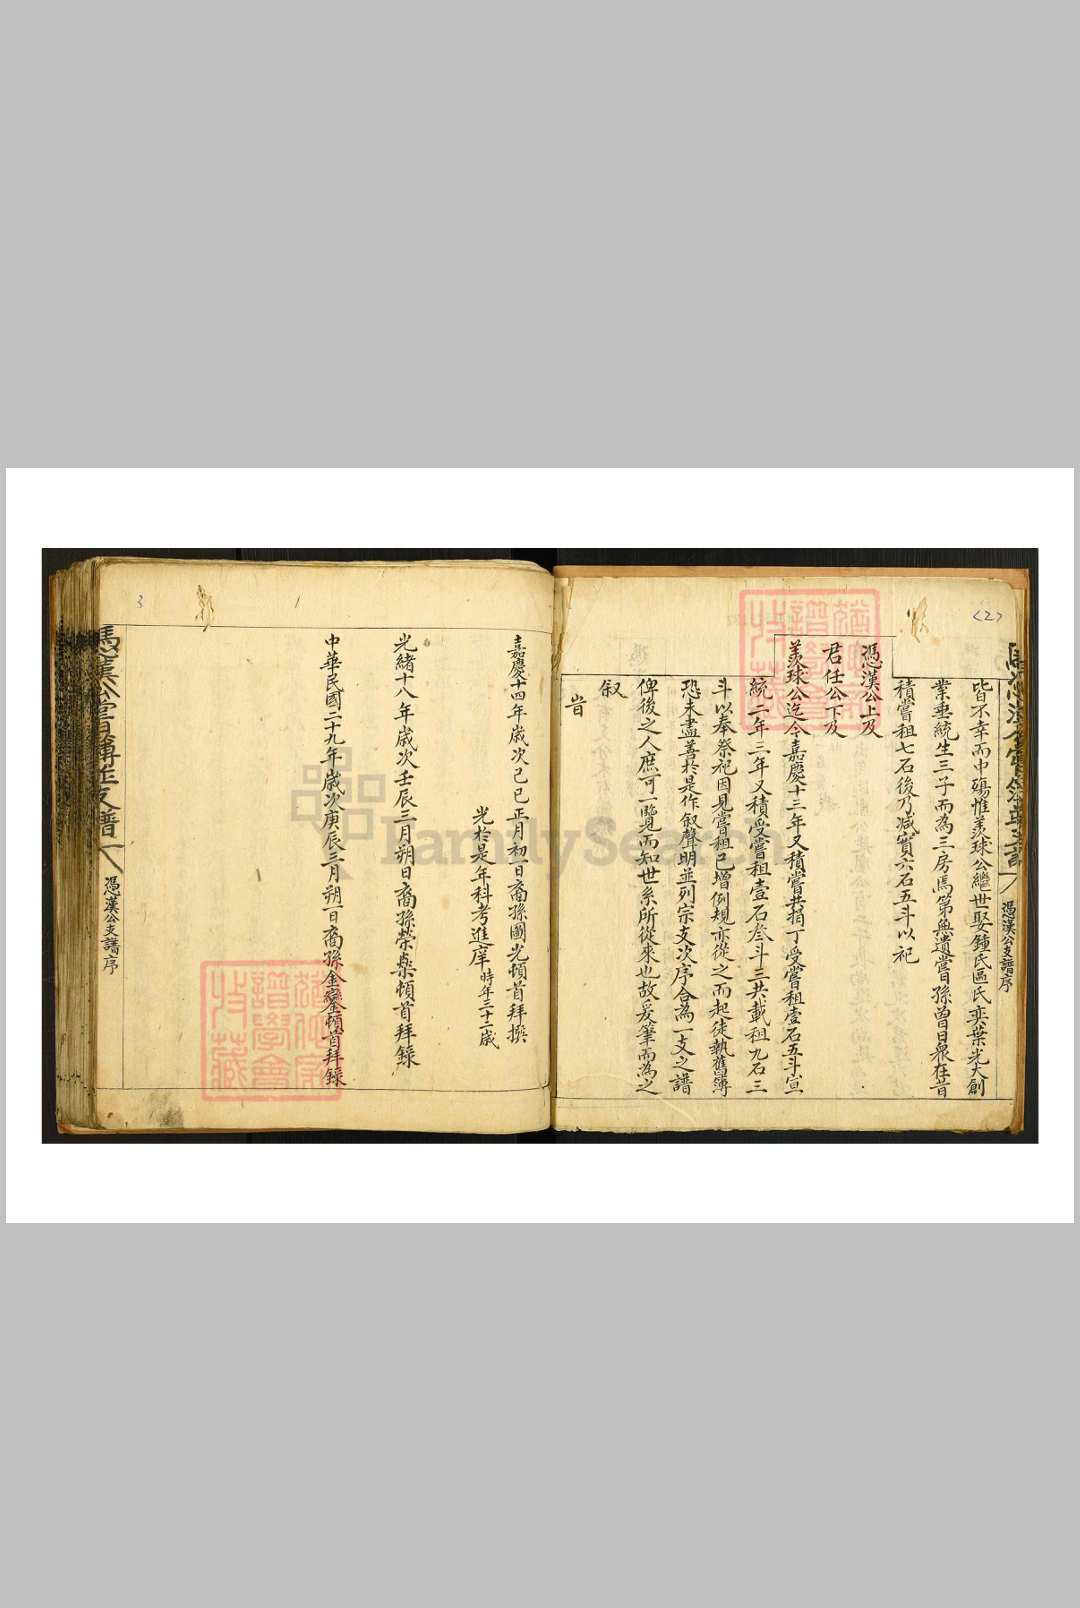 (2)
皆不幸而中殤惟羡球公繼世娶鍾氏區氏奕葉光大創
業垂統生三子而為三房焉第無遺嘗孫曾日衆在昔
積嘗租七石後乃減實六石五斗以祀
憑漢公上及
君任公下及
羡球公迄今嘉慶十三年又積嘗共捐丁受嘗租壹石五斗宣
統二年三年又積受嘗租壹石叁斗三共載租九石三
斗以奉祭祀因見嘗租已增例規亦從之而起徒執舊簿
恐未盡善於是作叙聲明並列宗支次序合為一支之譜
俾後之人庶可一覽而知世系所從來也故爰筆而為之
叙
旹
憑漢公支譜序
3
嘉慶十四年歲次己巳正月初一日裔孫國光頓首拜撰
光於是年科考進庠 時年三十二歲
光緒十八年歲次壬辰三月朔日裔孫榮燊頓首拜錄
中華民國二十九年歲次庚辰三月朔一日裔孫金鑾頓首拜錄
憑漢公嘗簿並支譜
憑漢公支譜序
FamilySearch